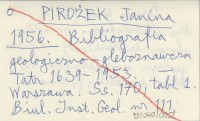 PIROŻEK Janina
1956. Bibliografia
geologiczno gleboznawcza
Tatr 1639-1953.
Warszawa. Ss. 170, tabl 1.
Biul. Inst. Geol. nr 111.